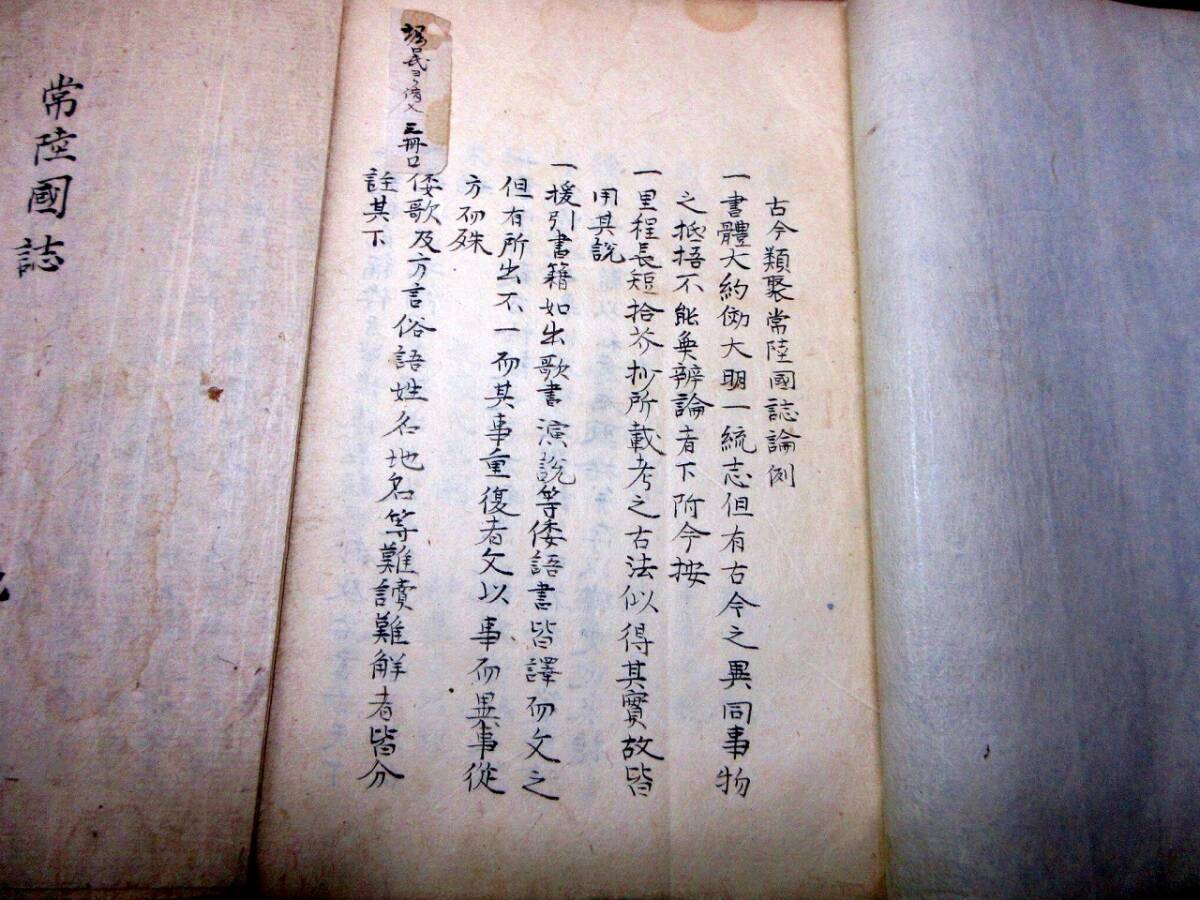 古今類聚常陸國誌論例
一書體大約倣大明一統志但有古今之異同事物
之抵捂不能無辨論者下附今按
一里程長短拾芥抄所載考之古法似得其實故皆
用其説
一援引書籍如出歌書演説等倭語書皆譯而文之
但有所出不一而其事重復者文以事而異事從
方而殊
倭歌及方言俗語姓名地名等難讀難解者皆分
註其下
三冊口
常陸國誌